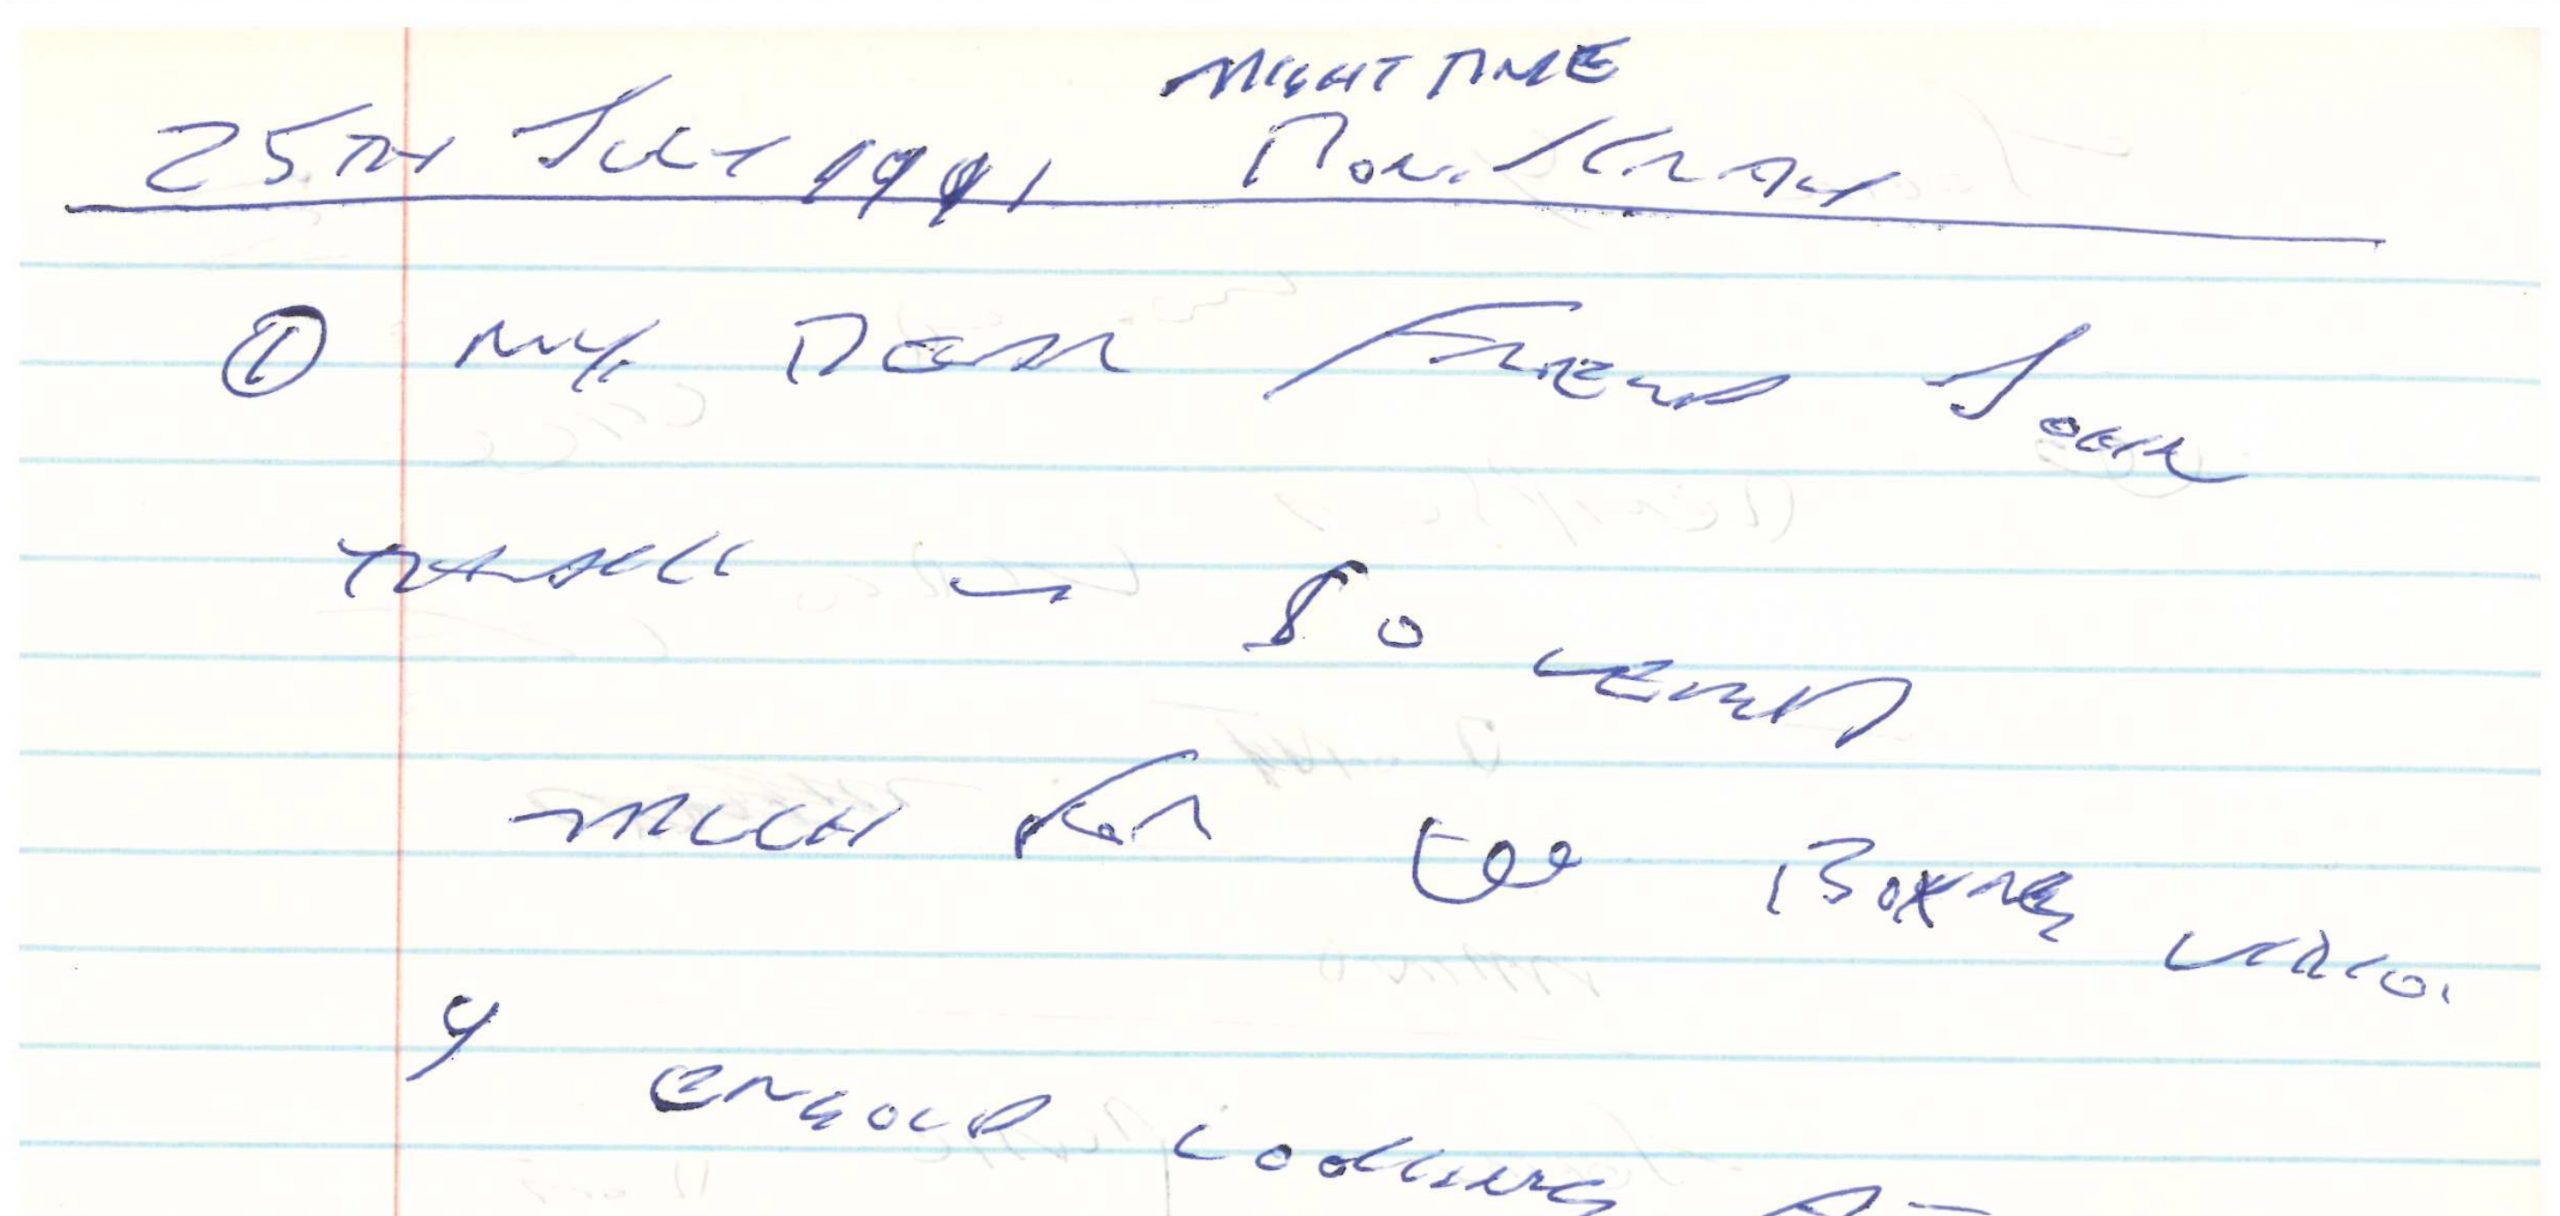 NIGHT TIME
25TH JULY 1991 RON. KRAY
① MY. DEAR FRIEND
THANK U SO VERY
MUCH FOR THE BOXING VIDEO.
I
ENJOYD LOOKING AT